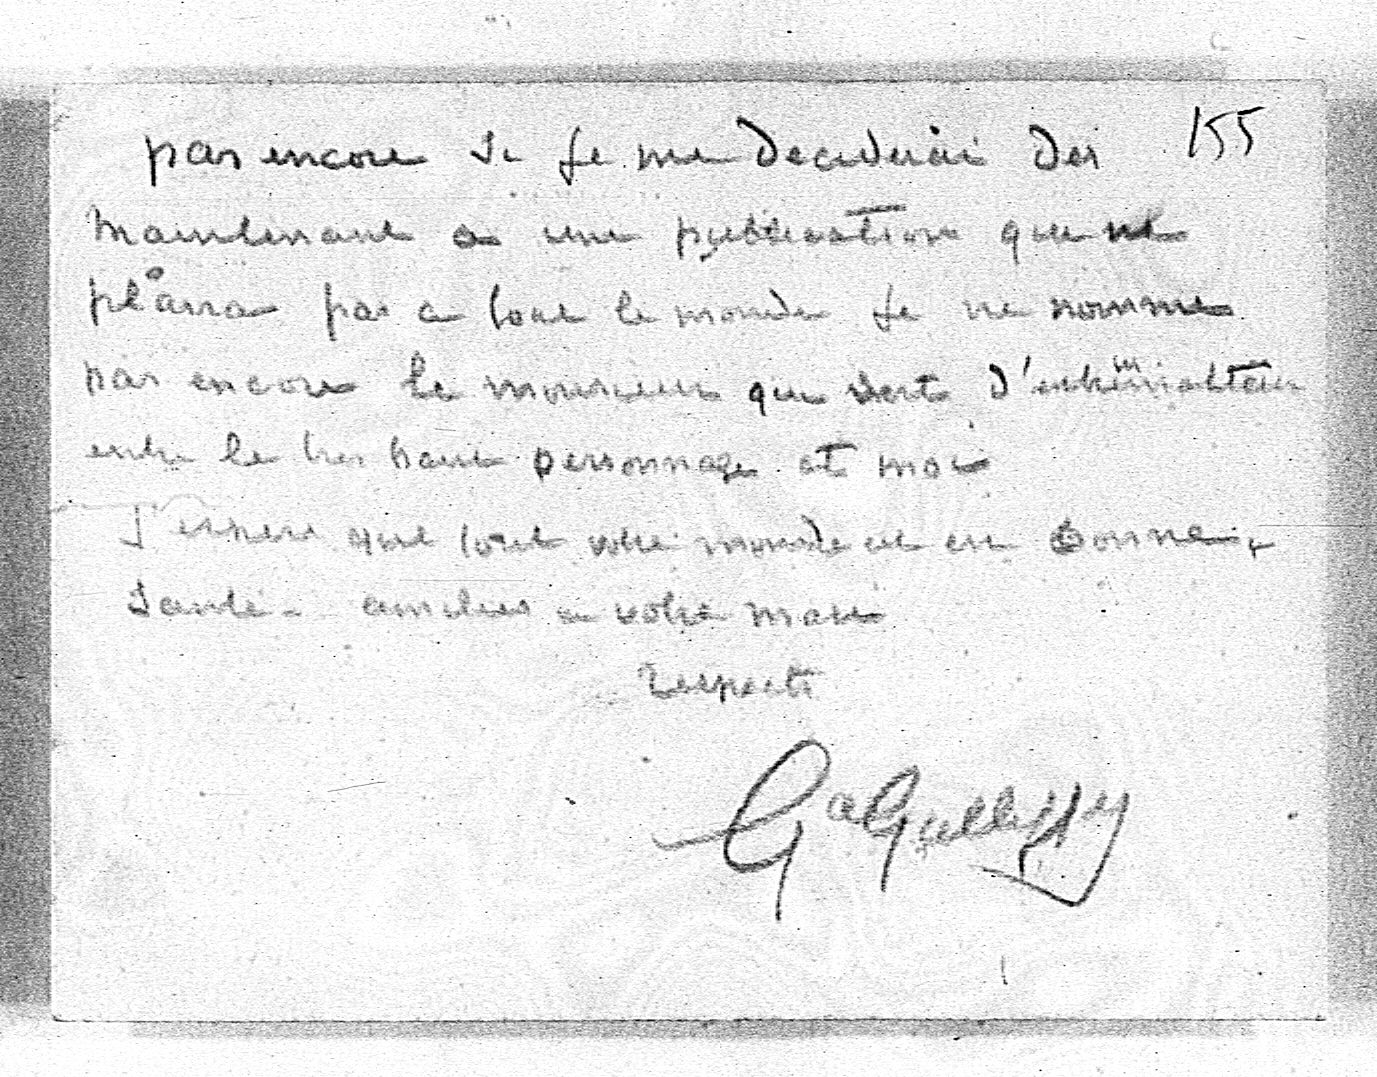 pas encore si je me deciderai des 155
maintenant a une publication qui ne
plaira pas a tout le monde je ne nomme
pas encore le monsieur qui sert d'intermediateur
entre le tres haut personnage et moi
J'espere que tout votre monde est en bonne
santé - amities a votre mari
respects